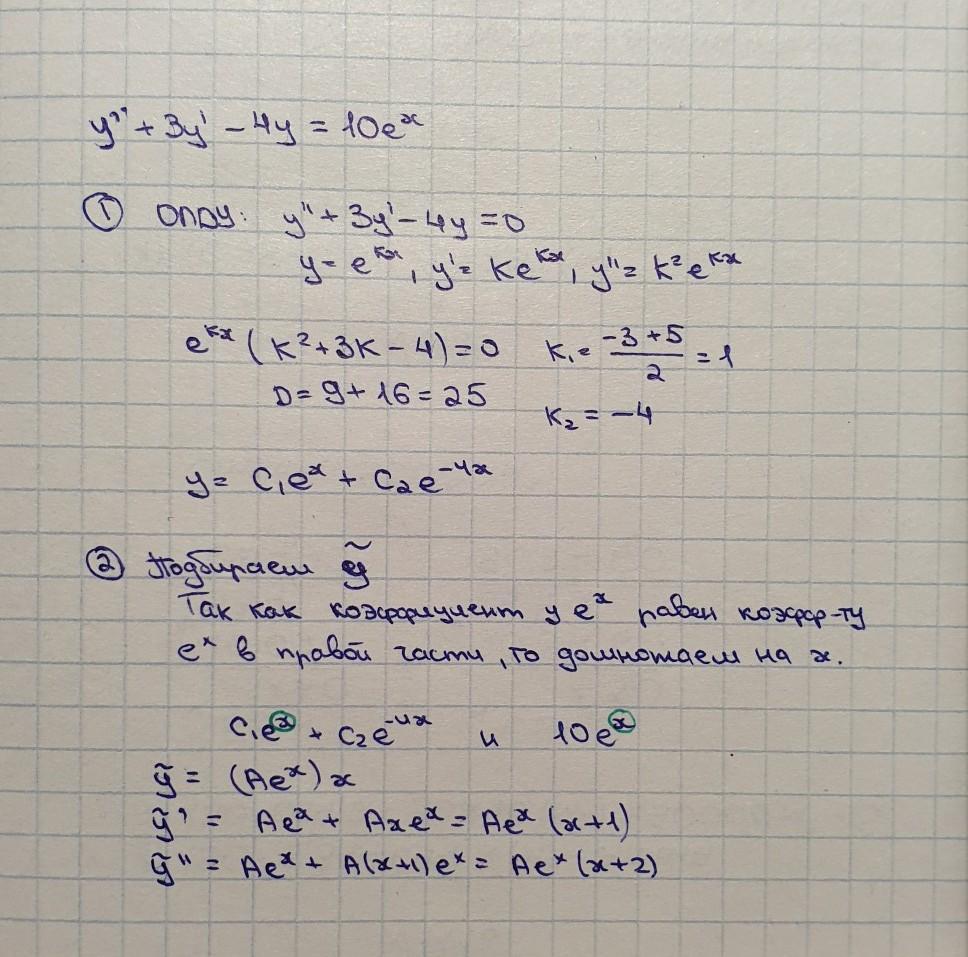 y'' + 3y' - 4y = 10eˣ
① ОЛДУ: y'' + 3y' - 4y = 0
y = eᵏˣ, y' = keᵏˣ, y'' = k²eᵏˣ
eᵏˣ (k² + 3k - 4) = 0 k₁ = (-3 + 5)/2 = 1
D = 9 + 16 = 25 k₂ = -4
y = C₁eˣ + C₂e⁻⁴ˣ
② Подбираем ỹ
Так как коэффициент у eˣ равен коэфф-ту
eˣ в правой части, то домножаем на x.
C₁eˣ + C₂e⁻⁴ˣ и 10eˣ
ỹ = (Aeˣ)x
ỹ' = Aeˣ + Axeˣ = Aeˣ (x+1)
ỹ'' = Aeˣ + A(x+1)eˣ = Aeˣ (x+2)